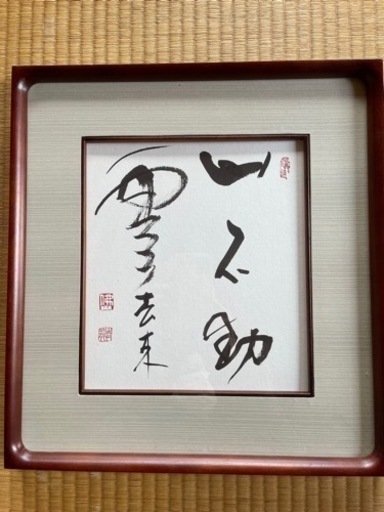 山不動
雲去来